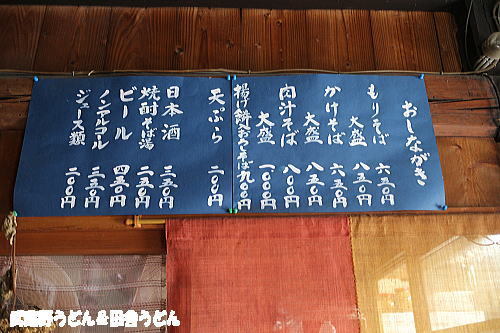 おしながき
もりそば 六五〇円
大盛 八五〇円
かけそば 六五〇円
大盛 八五〇円
肉汁そば 八〇〇円
大盛 一〇〇〇円
揚げ餅おろしそば 九〇〇円
天ぷら 二〇〇円
日本酒 三五〇円
焼酎そば湯 二五〇円
ビール 四五〇円
ノンアルコール 三五〇円
ジュース類 二〇〇円
武蔵野うどん＆田舎うどん